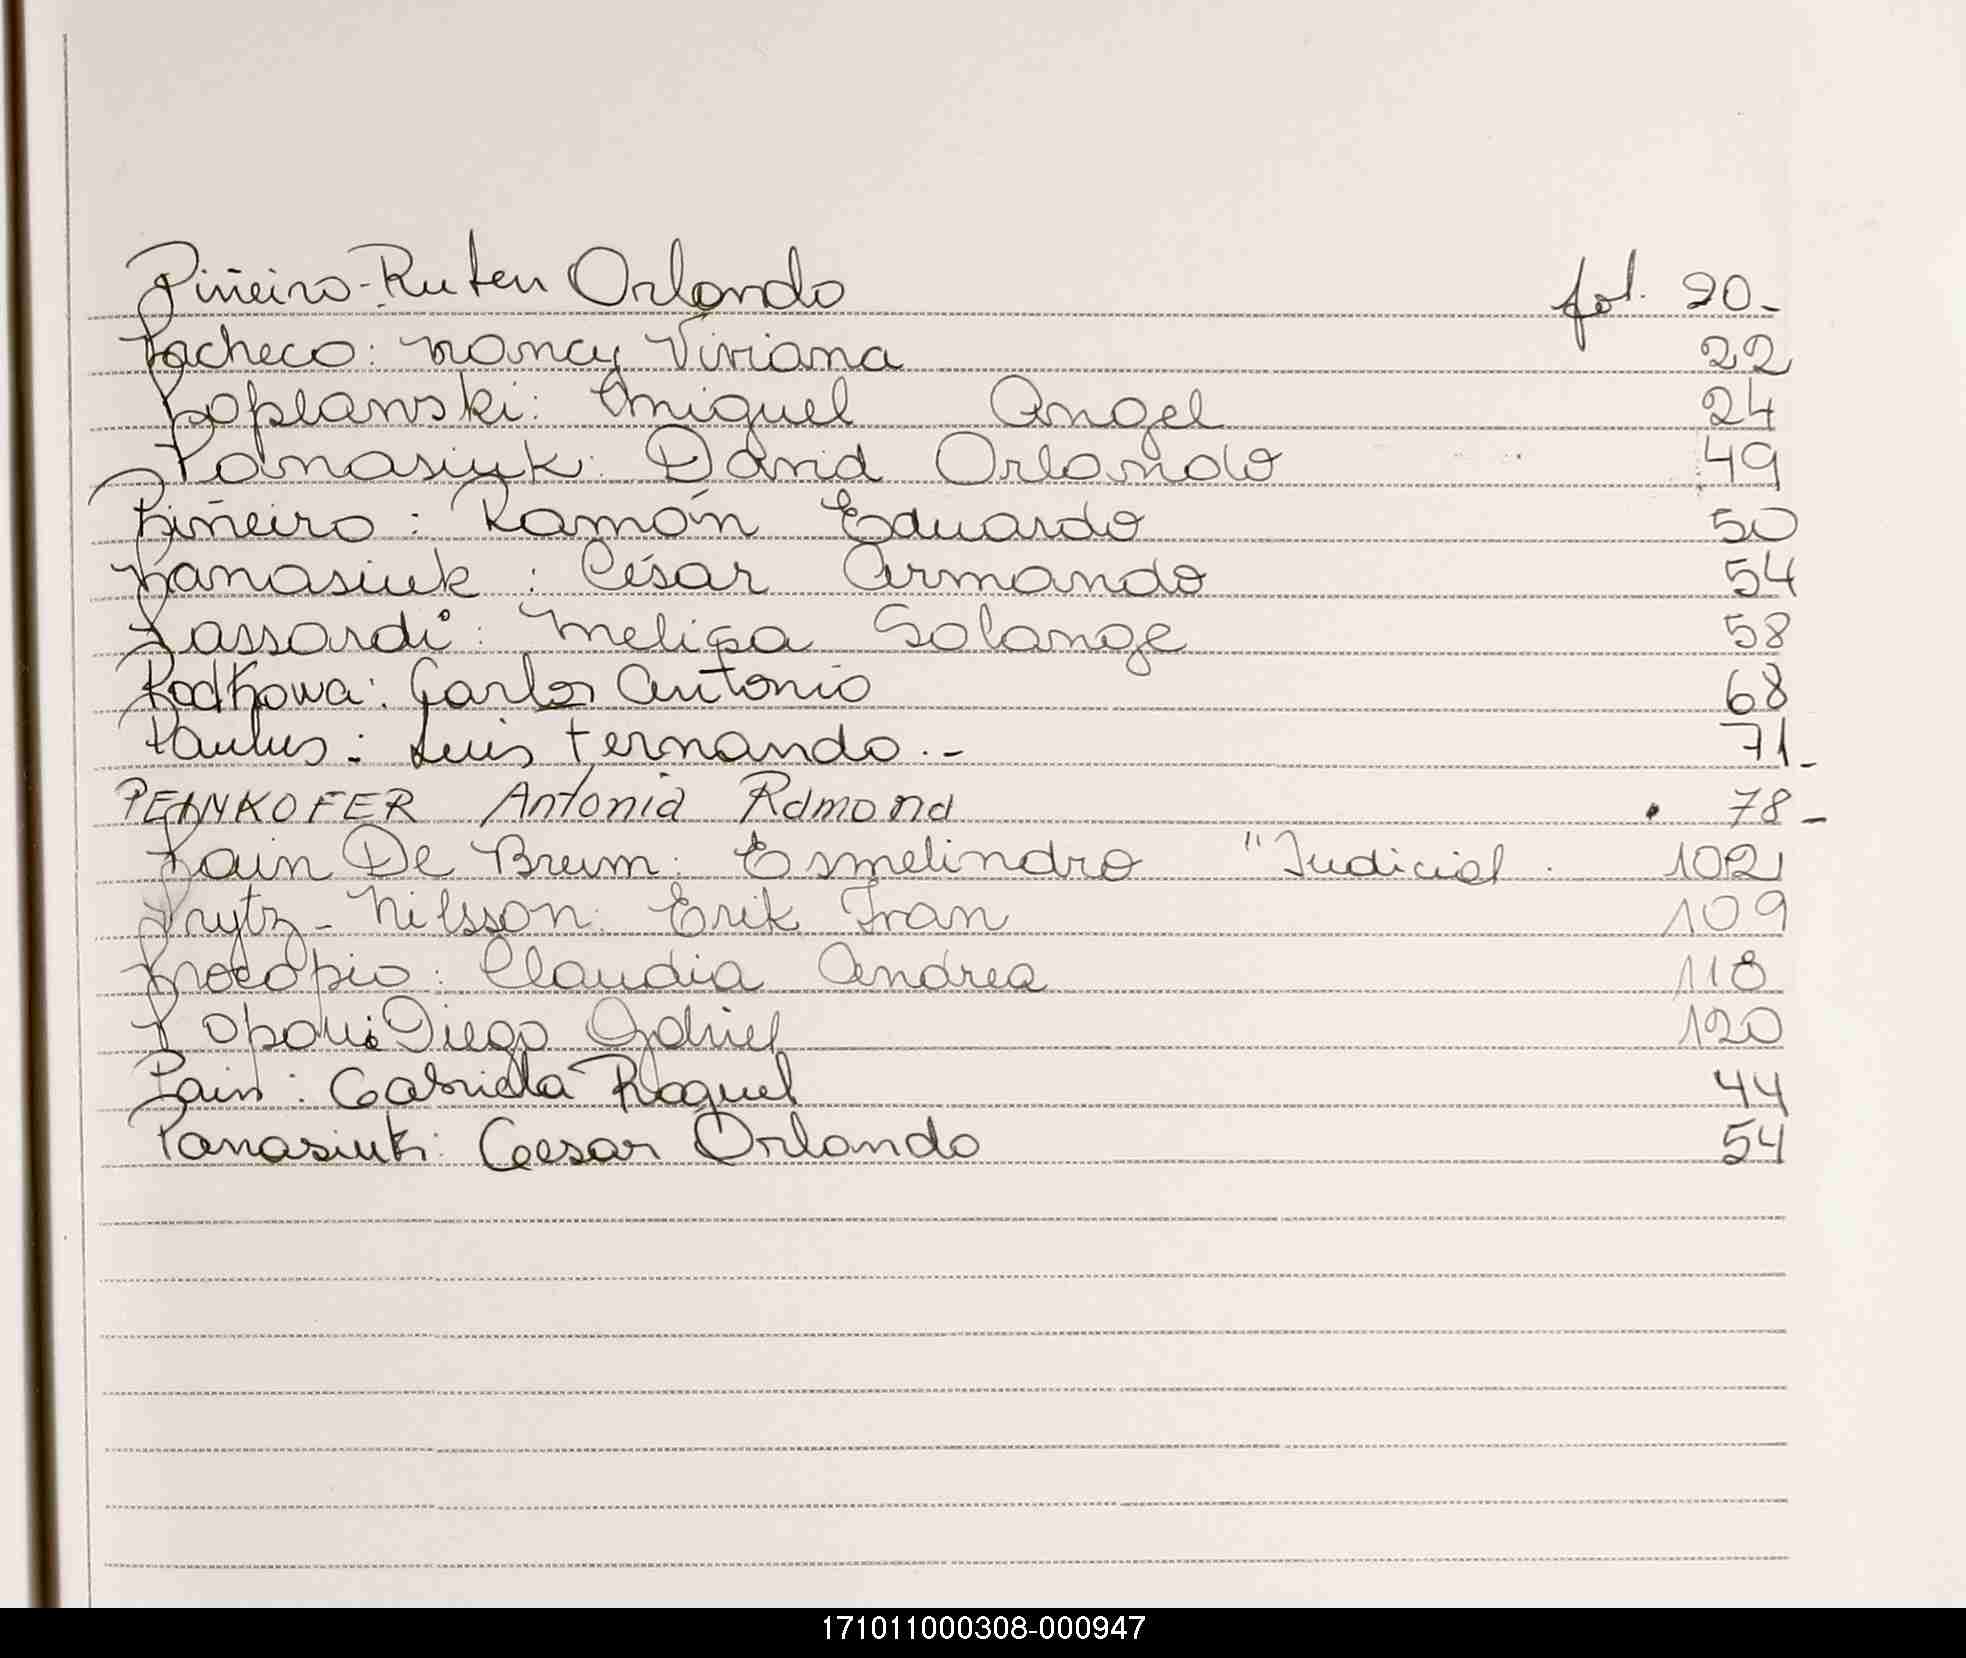 Piñeiro - Ruben Orlando fol. 20-
Pacheco: Nancy Viviana 22
Poplawski: Miguel Angel 24
Panasiuk: David Orlando 49
Piñeiro: Ramón Eduardo 50
Panasiuk: César Armando 54
Passardi: Melisa Solange 58
Podkowa: Carlos Antonio 68
Paulus: Luis Fernando.- 71-
PEINKOFER Antonia Ramona 78-
Pain De Brum: Esmelindro "Judicial. 102
Prytz - Nilsson: Erik Ivan 109
Procopio: Claudia Andrea 118
Diego 120
Pain: Gabriela Raquel 44
Panasiuk: Cesar Orlando 54
171011000308-000947